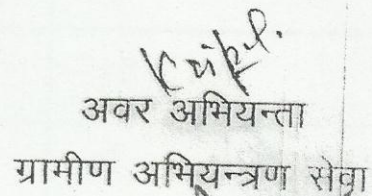 अवर अभियन्ता
ग्रामीण अभियन्त्रण सेवा